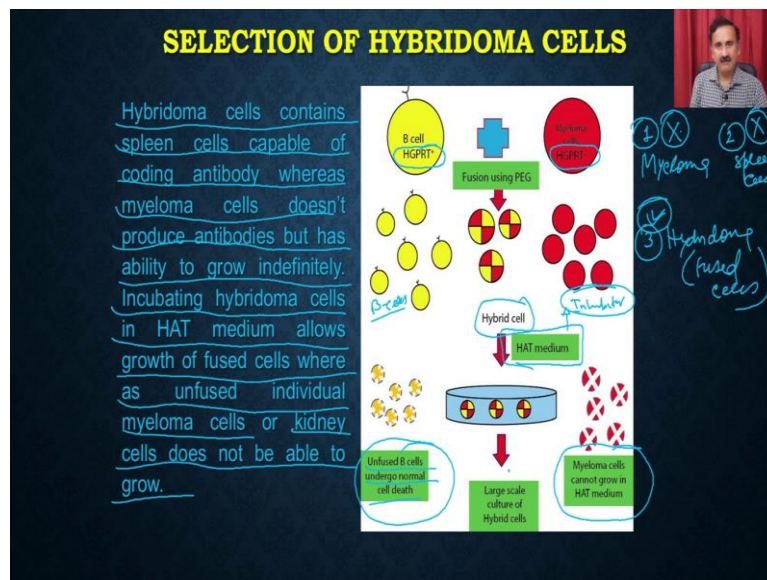 SELECTION OF HYBRIDOMA CELLS
Hybridoma cells contains
spleen cells capable of
coding antibody whereas
myeloma cells doesn't
produce antibodies but has
ability to grow indefinitely.
Incubating hybridoma cells
in HAT medium allows
growth of fused cells where
as unfused individual
myeloma cells or kidney
cells does not be able to
grow.
B cell
HGPRT⁺
Myeloma
cells
HGPRT
Fusion using PEG
B-cells
Hybrid cell
Inhibitor
HAT medium
Unfused B cells
undergo normal
cell death
Large scale
culture of
Hybrid cells
Myeloma cells
cannot grow in
HAT medium
1 X
Myeloma
2 X
Spleen
cells
3 Hybridoma
(fused
cells)